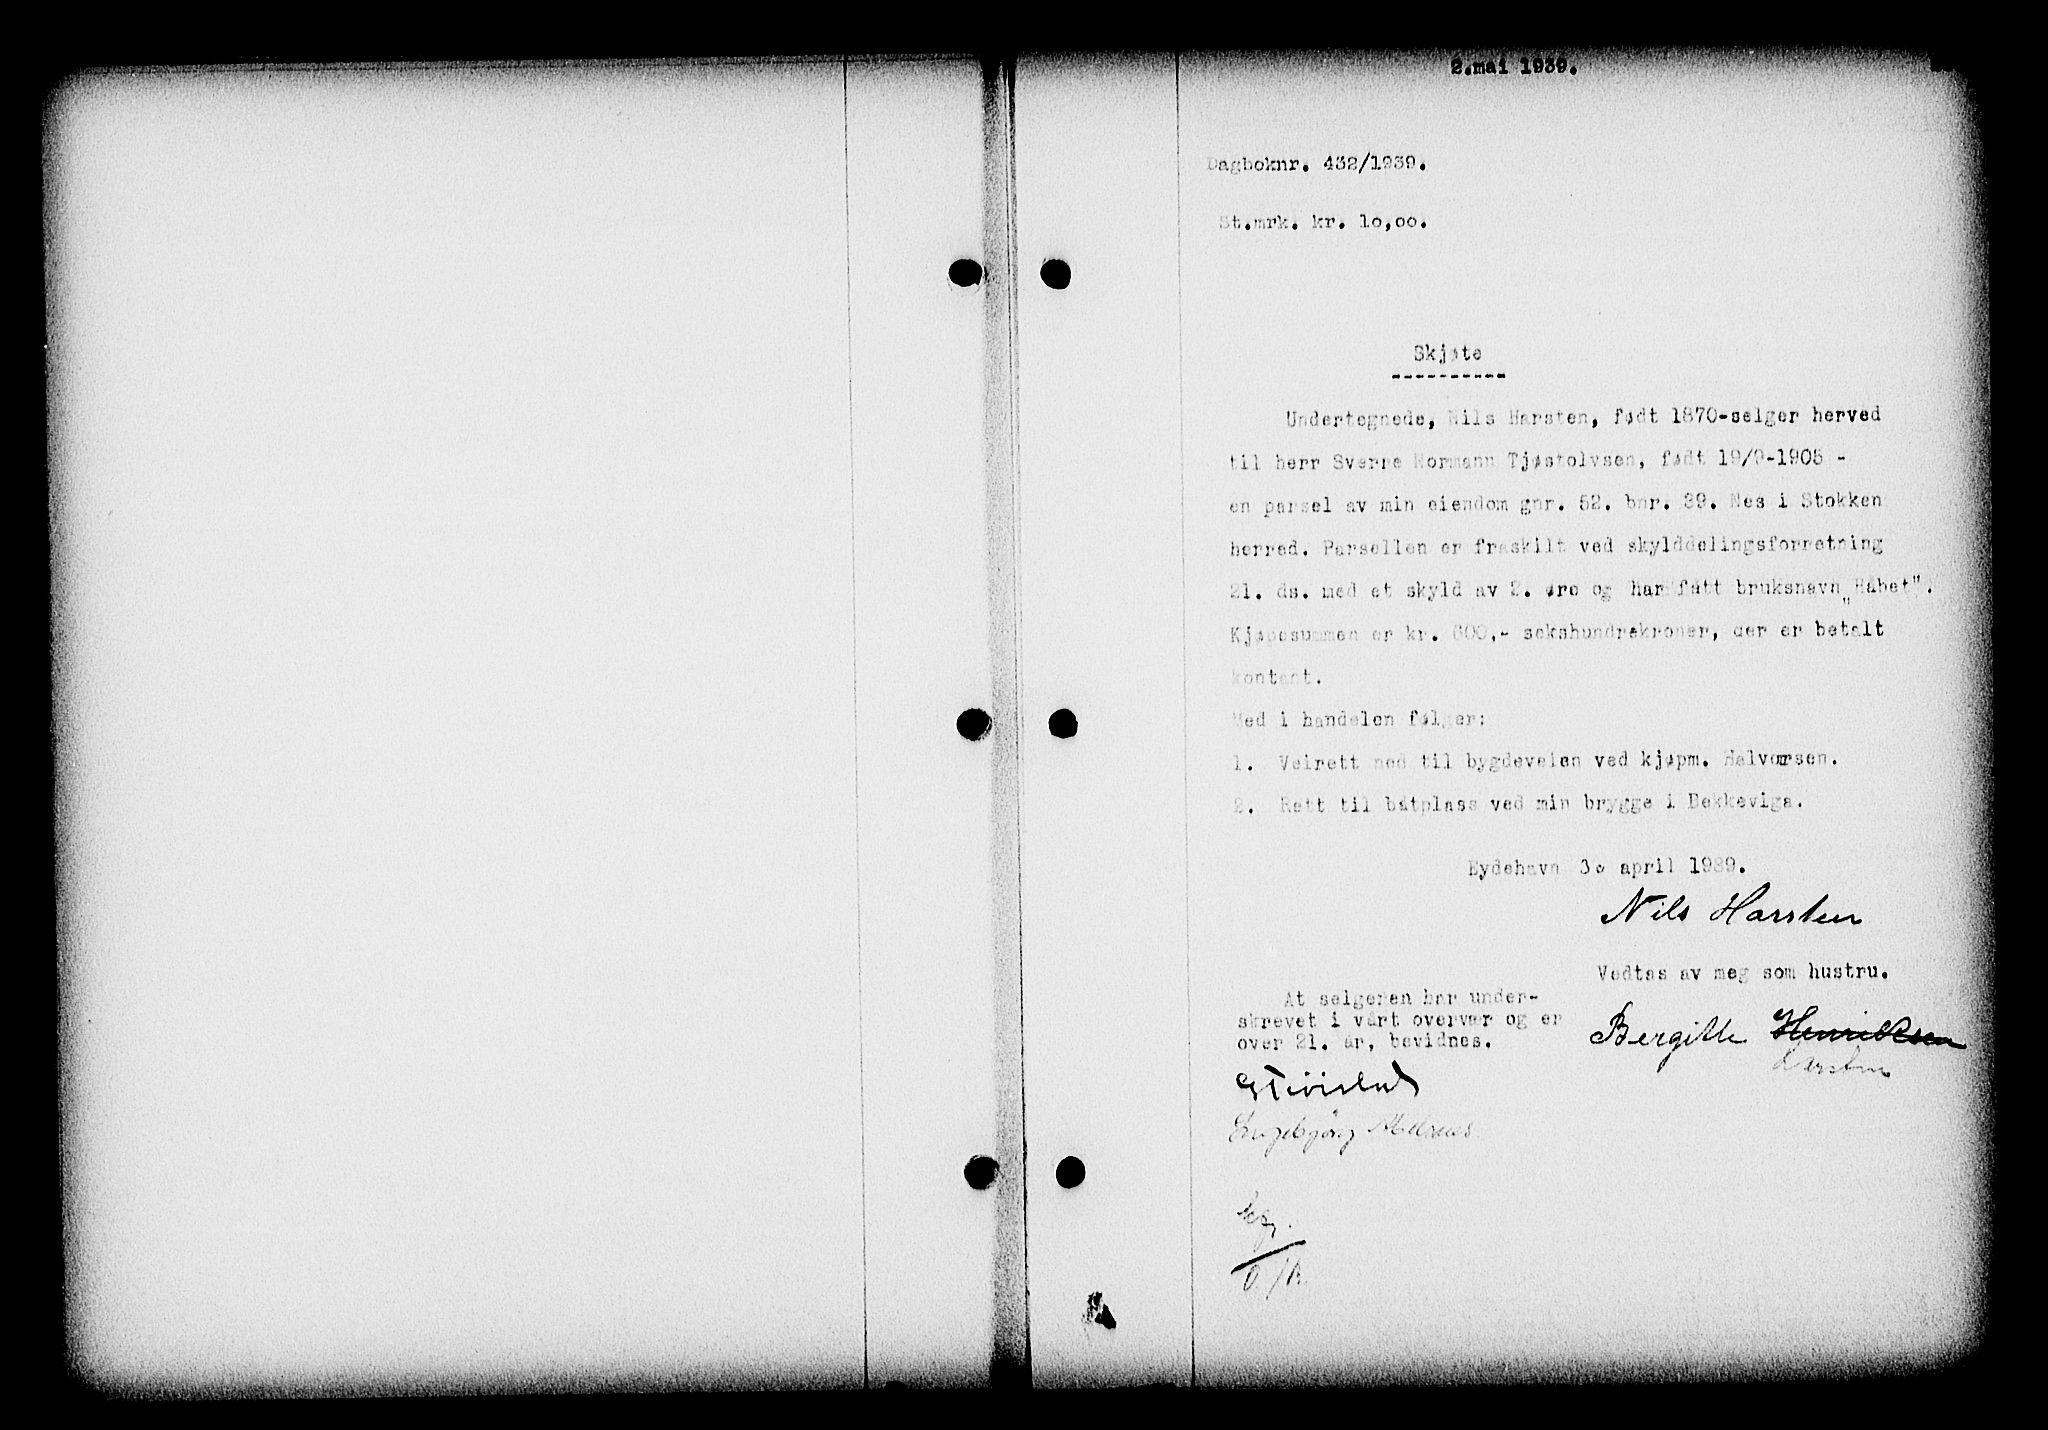 2.mai 1939.
Dagboknr. 432/1939.
St.mrk. kr. 10,00.
Skjøte
Undertegnede, Nils Harsten, født 1870-selger herved
til herr Sverre Normann Tjøstolvsen, født 19/9-1905 -
en parsel av min eiendom gnr. 52. bnr. 39. Nes i Stokken
herred. Parsellen er fraskilt ved skylddelingsforretning
21. ds. med et skyld av 2. øre og har fått bruksnavn „Håbet".
Kjøpesummen er kr. 600,- sekshundrekroner, der er betalt
kontant.
Med i handelen følger:
1. Veirett ned til bygdeveien ved kjøpm. Halvorsen.
2. Rett til båtplass ved min brygge i Bekkeviga.
Eydehavn 30 april 1939.
Nils Harsten
Vedtas av meg som hustru.
Bergitte Henriksen
Harsten
At selgeren har under-
skrevet i vårt overvær og er
over 21. år, bevidnes.
Engebjørg